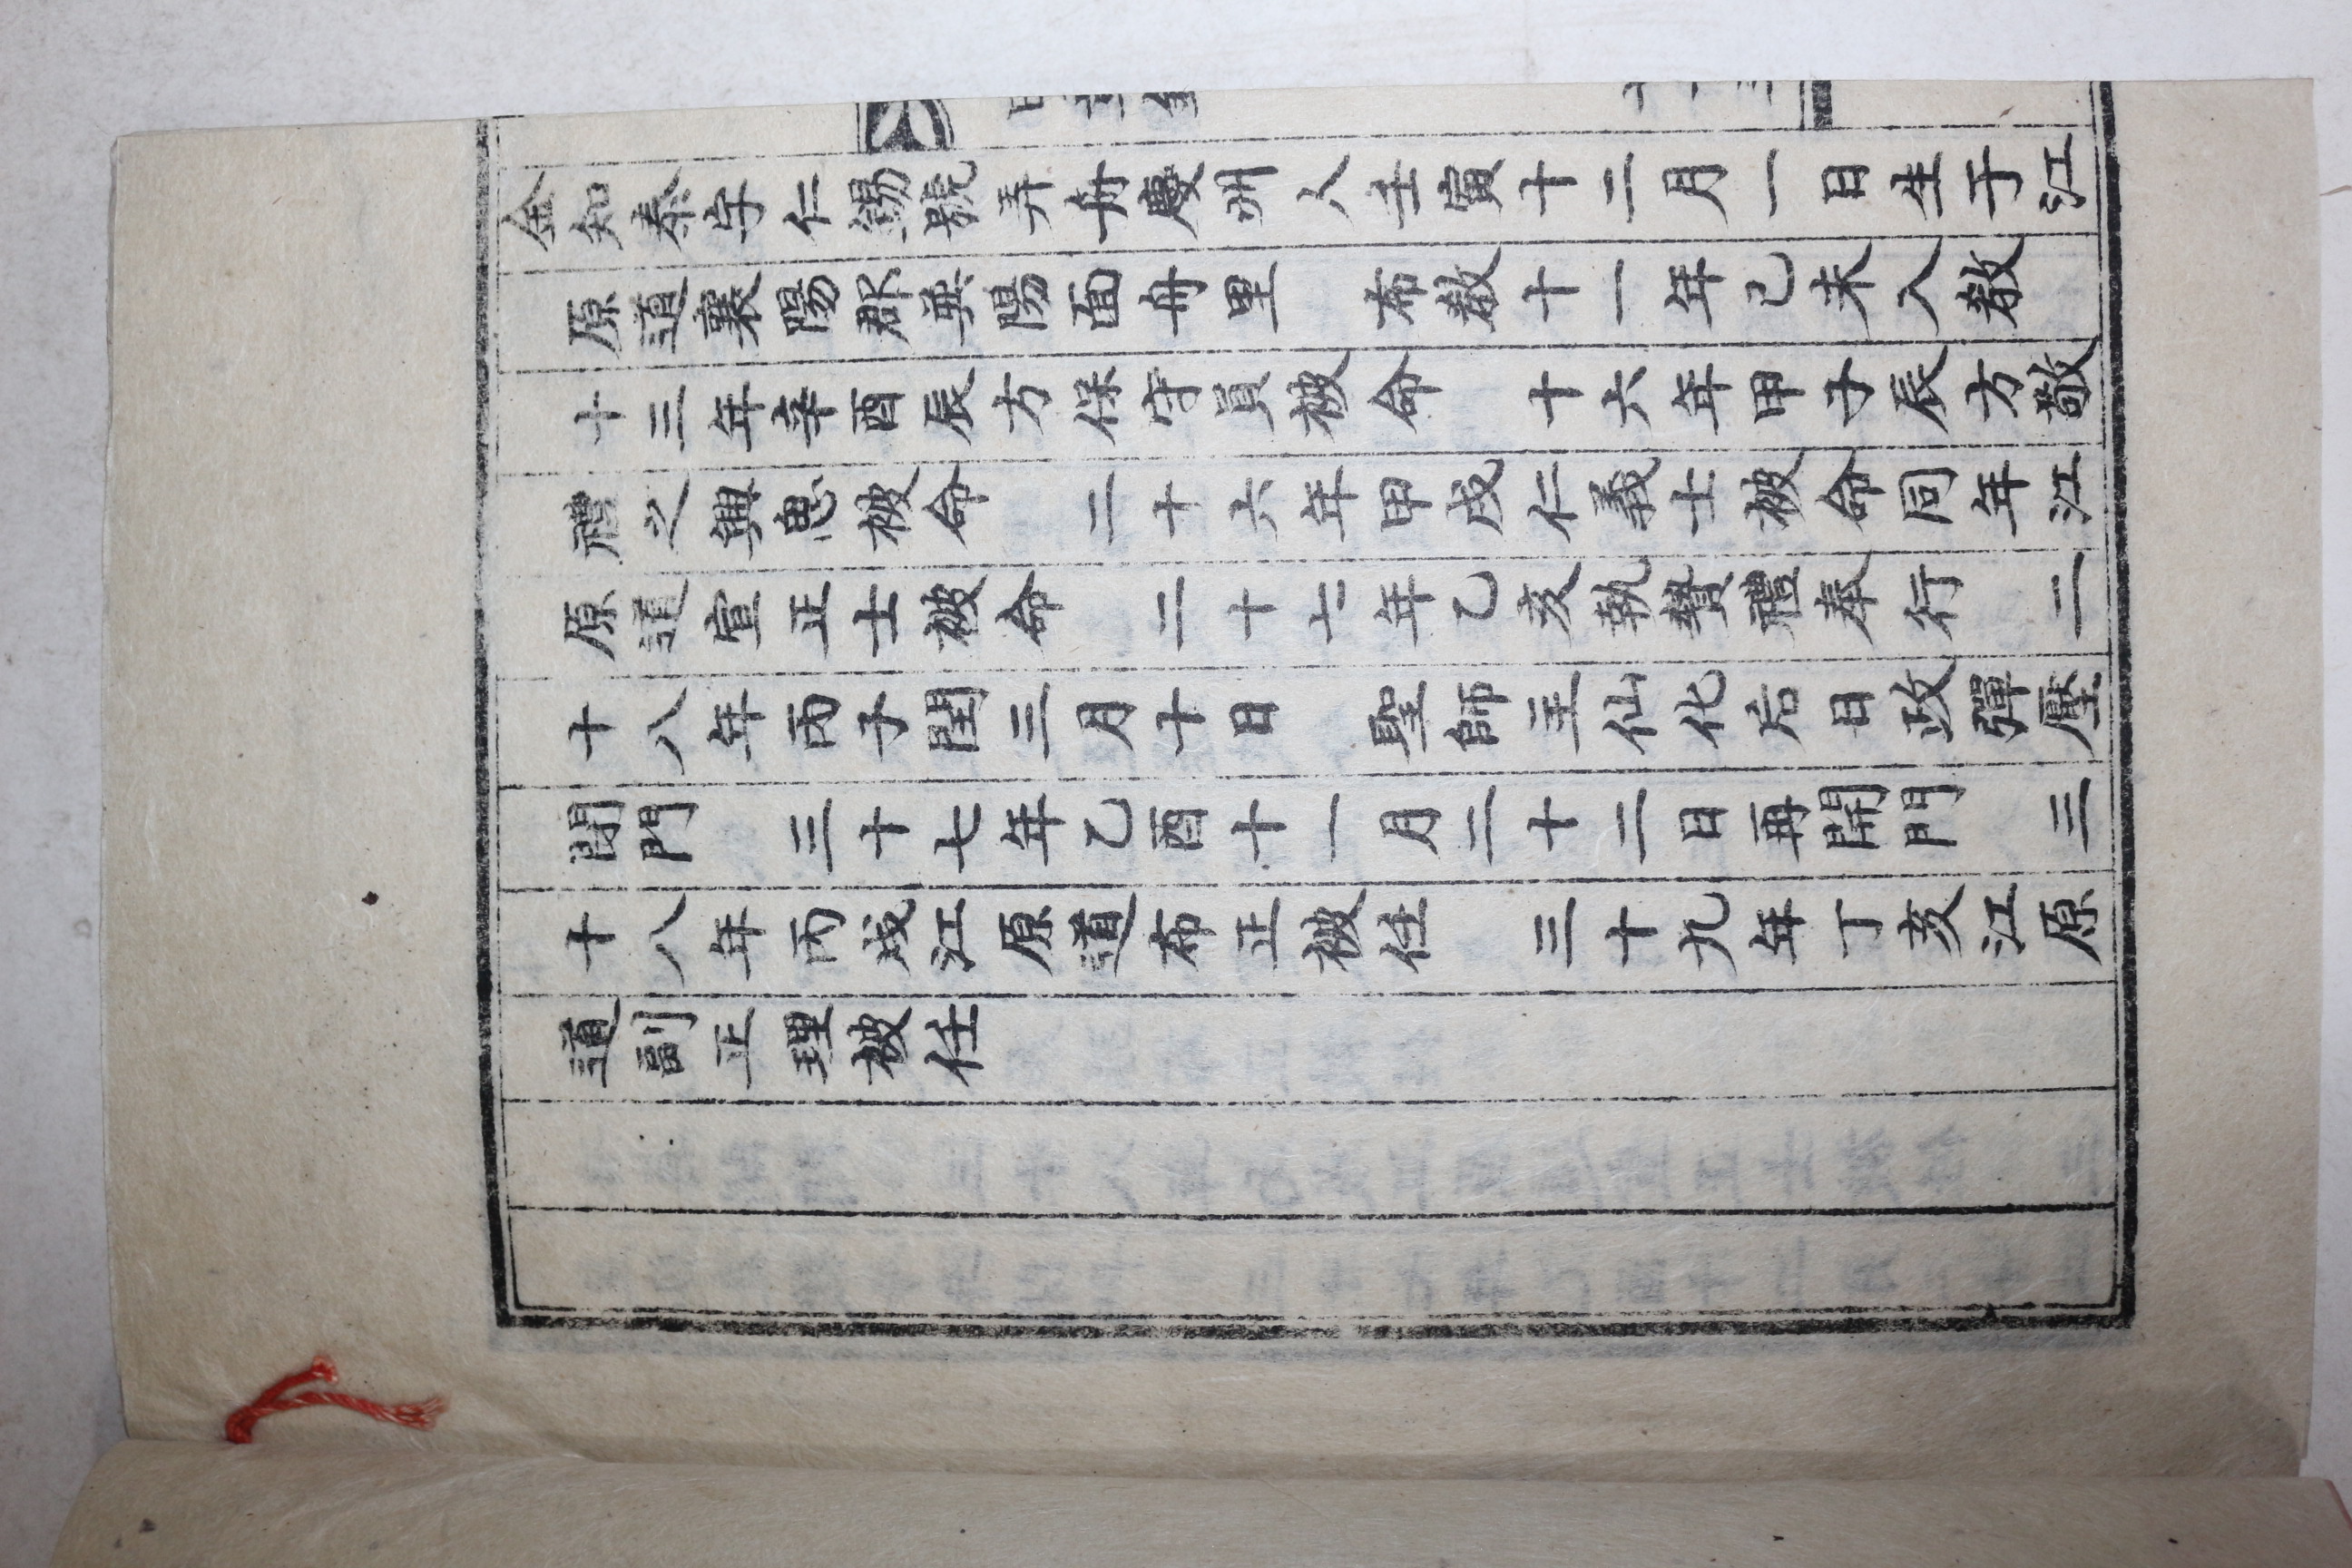 金知泰字仁錫號弄舟慶州人壬寅十二月一日生于江
原道襄陽郡巽陽面舟里　布敎十一年己未入敎
十三年辛酉辰方保守員被命　十六年甲子辰方敬
禮之興恩被命　二十六年甲戌仁義士被命同年江
原道宣正士被命　二十七年乙亥執贊禮奉行　二
十八年丙子閏三月十日　聖師主仙化后日政彈壓
閉門　三十七年乙酉十一月二十二日再開門　三
十八年丙戌江原道布正被任　三十九年丁亥江原
道副正理被任